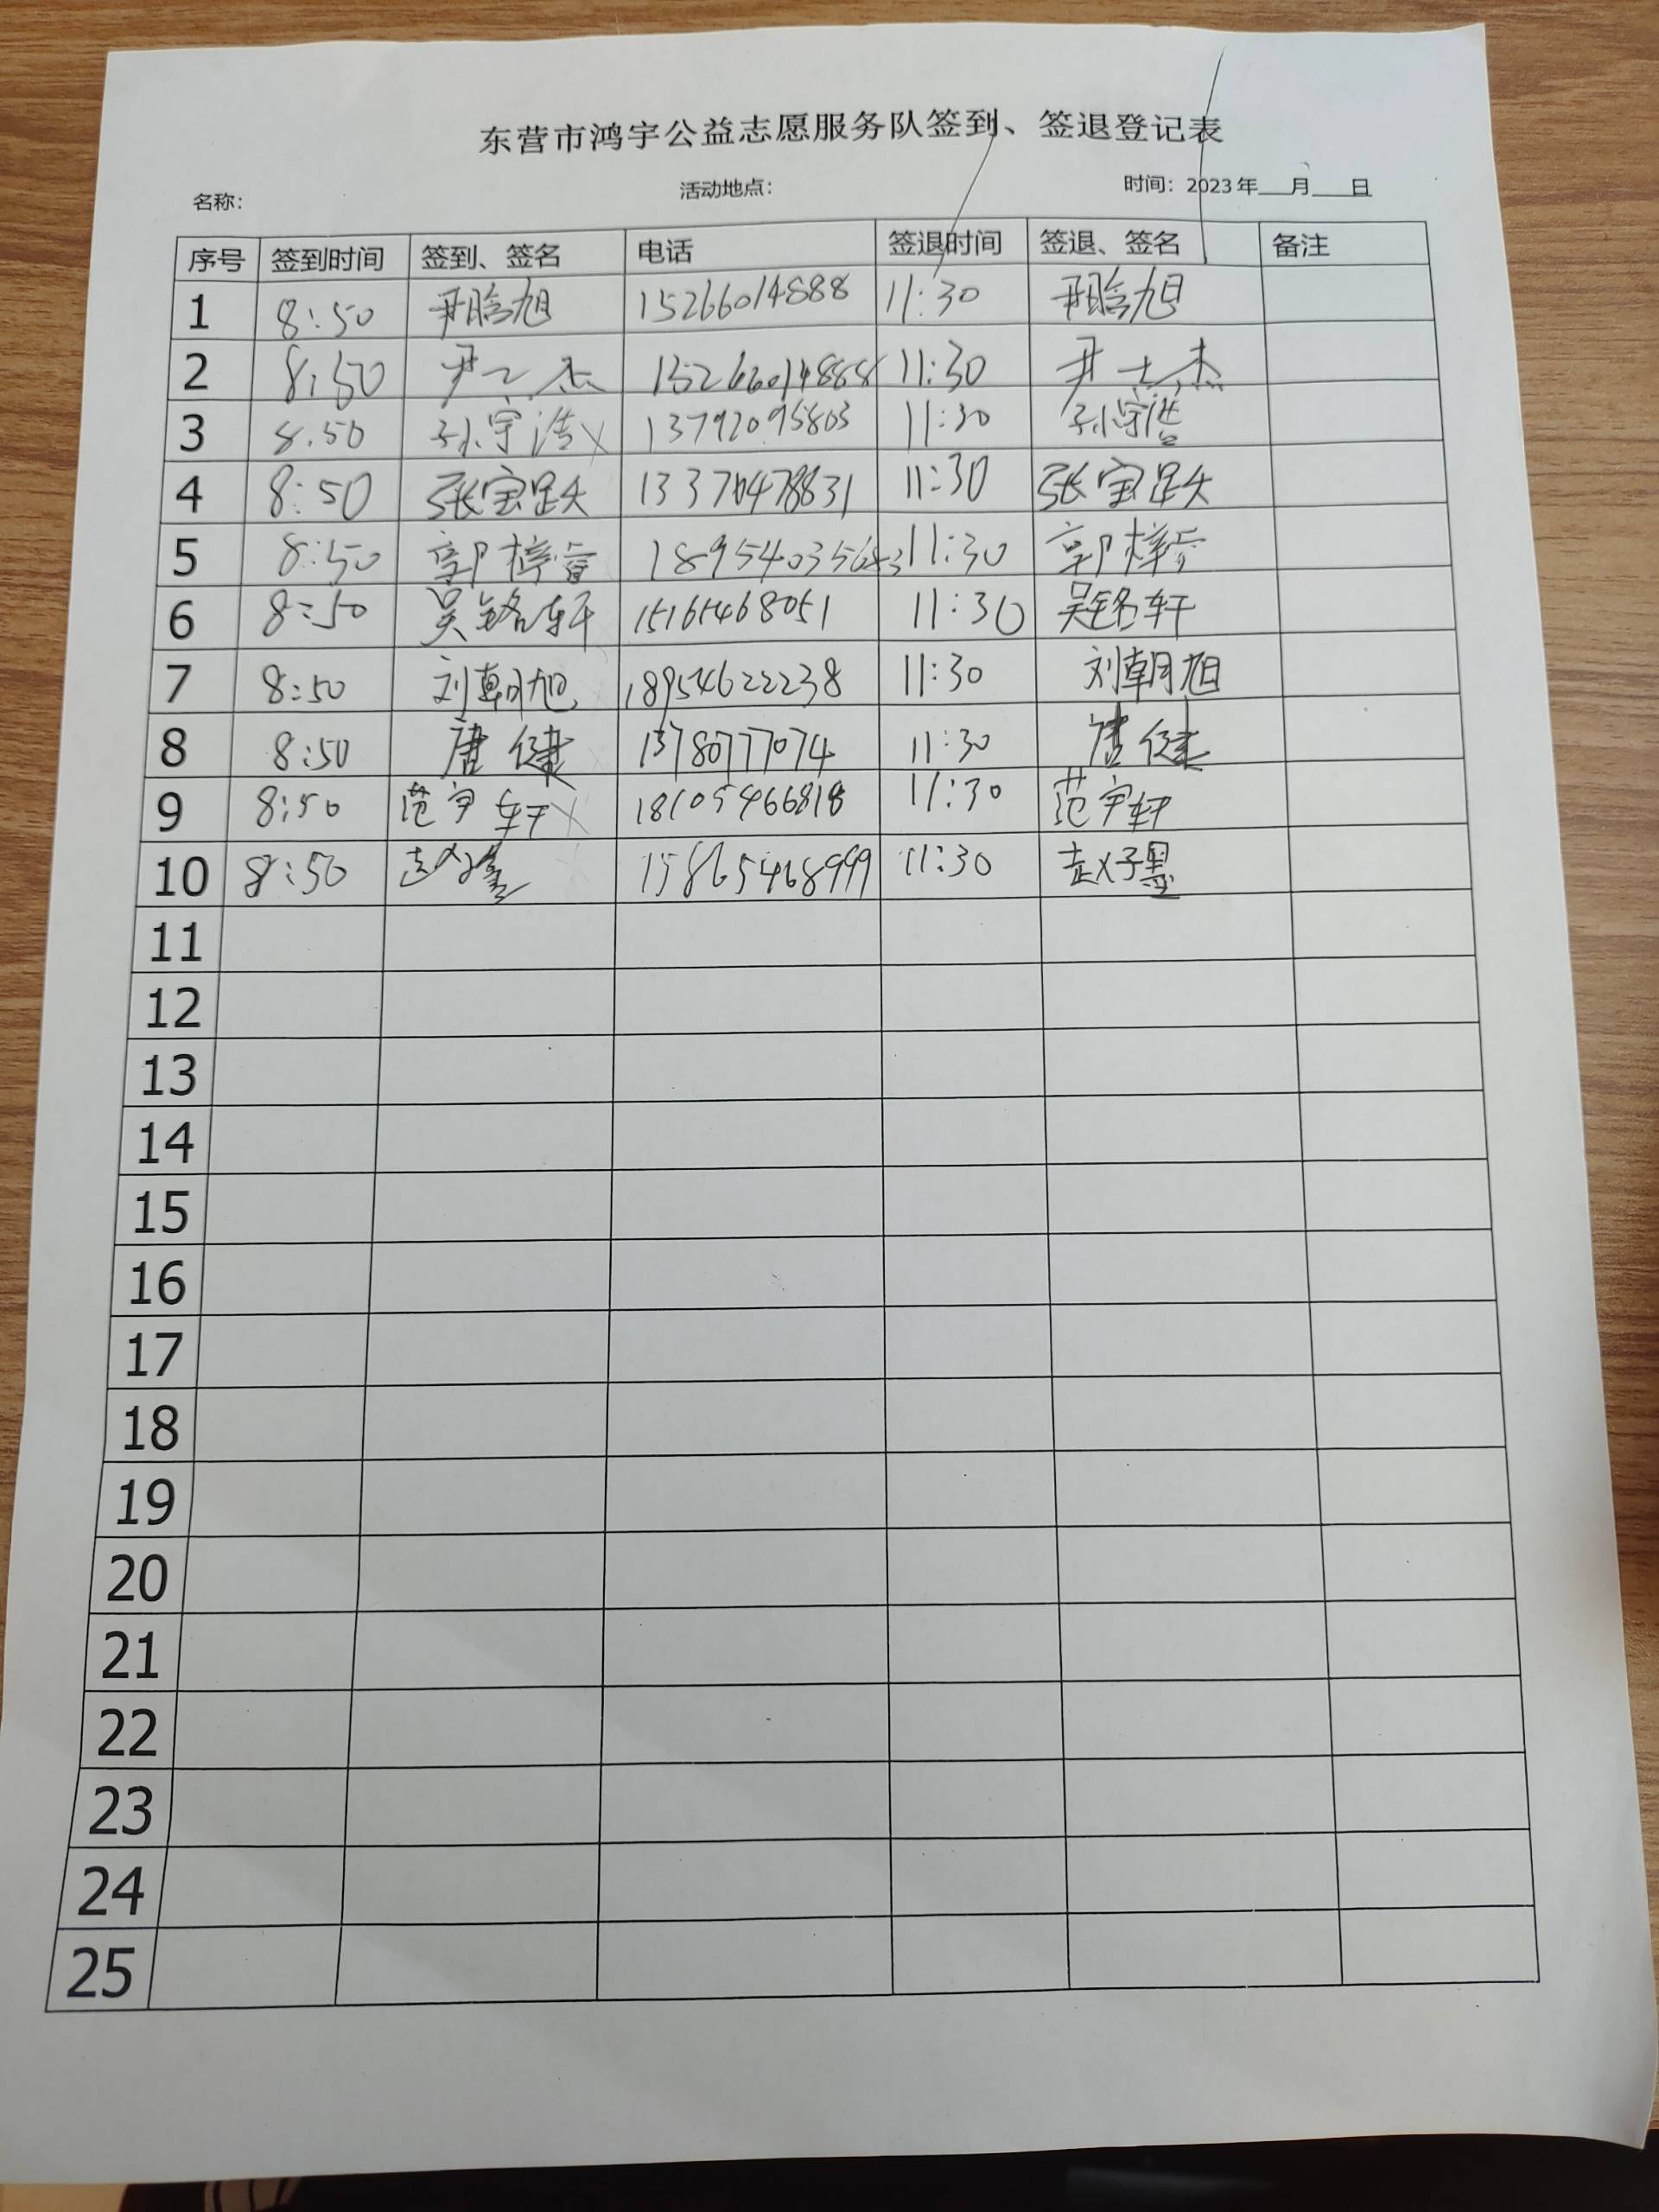 东营市鸿宇公益志愿服务队签到、签退登记表
名称： 活动地点： 时间：2023年___月___日
序号 签到时间 签到、签名 电话 签退时间 签退、签名 备注
1 8:50 尹晗旭 15266014888 11:30 尹晗旭
2 8:50 尹士杰 15266014888 11:30 尹士杰
3 8.50 孙宇浩 13792095803 11:30 孙宇浩
4 8:50 张宝跃 13370478831 11:30 张宝跃
5 8:50 郭梓睿 11:30 郭梓睿
6 8:50 吴铭轩 15165468051 11:30 吴铭轩
7 8:50 刘朝旭 18954622238 11:30 刘朝旭
8 8:50 唐健 13780777074 11:30 唐健
9 8:50 范宇轩 18105466818 11:30 范宇轩
10 8:50 赵子墨 15865468999 11:30 赵子墨
11
12
13
14
15
16
17
18
19
20
21
22
23
24
25